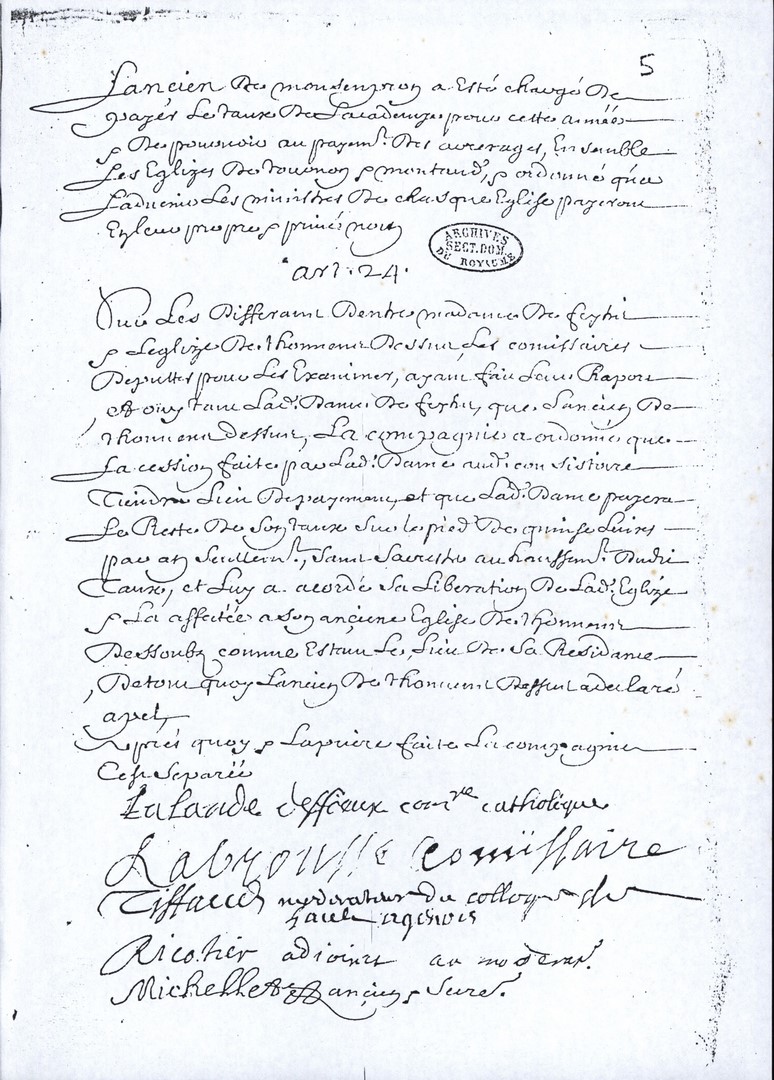 5
Lancien de monsempron a esté chargé de
payer le taux de Lacademye pour cette année
& de pourvoir au payemt. des arrerages, Ensemble
Les Eglizes de tournon & montaud, & ordonné que
Ladvenir Les ministres de chasque Eglise payeront
En leur propre & privé nom
ARCHIVES
SECT. DOM.
DU ROYAUME
art. 24.
Sur Les differans dentre madame de
& Leglize de thonneins dessus Les comissaires
depputtes pour Les Examiner, ayant fait Leur Raport
et oüy tant Lad. dame de que Lancien de
thonneins dessus, La compagnie a ordonné que
La cession faite par Lad. dame aud. consistoire
tiendra Lieu de payement, et que Lad. dame payera
Le Reste de son taux sur le pied de quinse Livres
par an seullemt., sans au haussemt. dudit
taux, et Luy a acordé sa Liberation de Lad. Eglize
& La affectée a son anciene Eglise de thonneins
dessoubz comme Estant Le Lieu de sa Residance
de tout quoy Lancien de thonneins dessus a declaré
apel,
Après quoy & La priere faite La compagnie
Cest separée
Lalande comre catholique
Labrousse Comissaire
moderateur du colloque du
haut agenois
Ricotier adjoint au moderatr.
ancien & Secre.